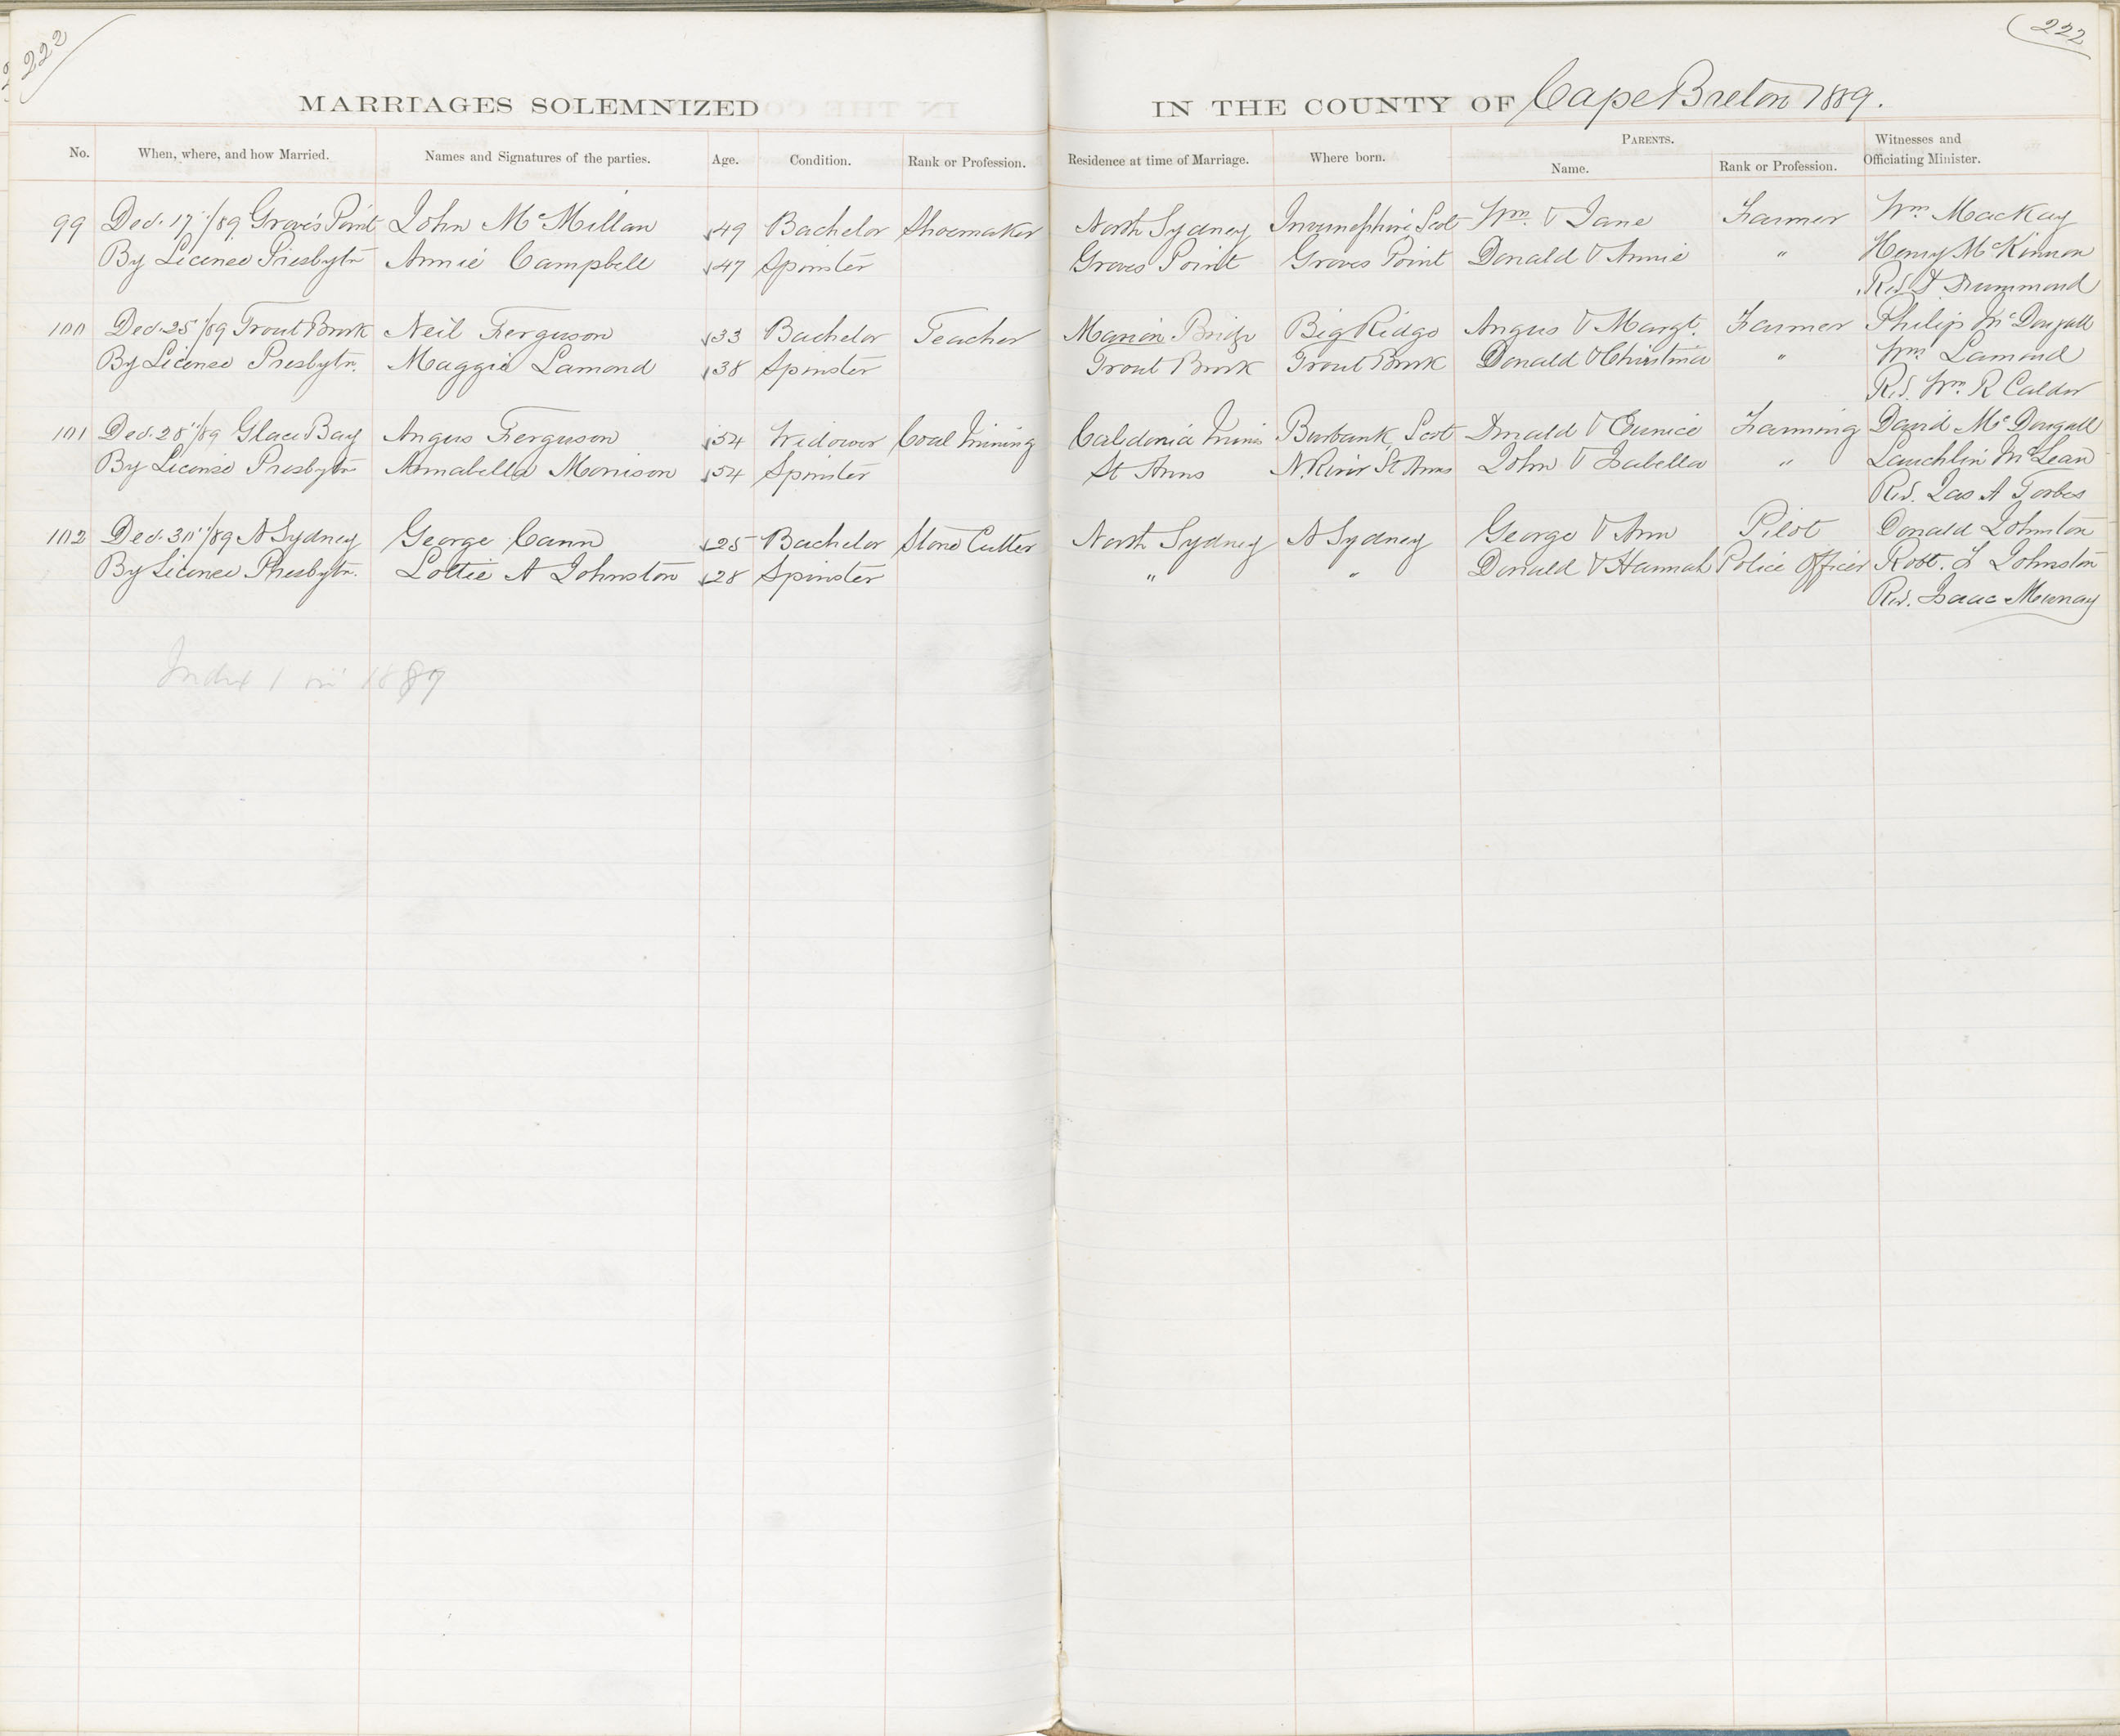 222
222
MARRIAGES SOLEMNIZED IN THE COUNTY OF Cape Breton 1889.
No. When, where, and how Married. Names and Signatures of the parties. Age. Condition. Rank or Profession. Residence at time of Marriage. Where born. PARENTS. Name. Rank or Profession. Witnesses and Officiating Minister.
99 Dec. 17"/89 Groves Point John McMillan 49 Bachelor Shoemaker North Sydney Invernesshire Scot Wm & Jane Farmer Wm MacKay
By License Presbytn Annie Campbell 47 Spinster Groves Point Groves Point Donald & Annie " Henry McKinnon
Rev D Drummond
100 Dec. 25"/89 Trout Brook Neil Ferguson 33 Bachelor Teacher Marion Bridge Big Ridge Angus & Margt. Farmer Philip McDougall
By License Presbytn. Maggie Lamond 38 Spinster Trout Brook Trout Brook Donald & Christina " Wm Lamond
Rev. Wm R Calder
101 Dec. 28"/89 Glace Bay Angus Ferguson 54 Widower Coal Mining Caledonia Mines Burbank, Scot Donald & Eunice Farming David McDougall
By License Presbytn Annabella Morrison 54 Spinster St Anns N. River St Anns John & Isabella " Lauchlin McLean
Rev. Jas A Forbes
102 Dec. 30"/89 N Sydney George Cann 25 Bachelor Stone Cutter North Sydney N Sydney George & Ann Pilot Donald Johnston
By License Presbytn. Lottie A Johnston 28 Spinster " " Donald & Hannah Police Officer Robt. F Johnston
Rev. Isaac Murray
Index 1 in 1889